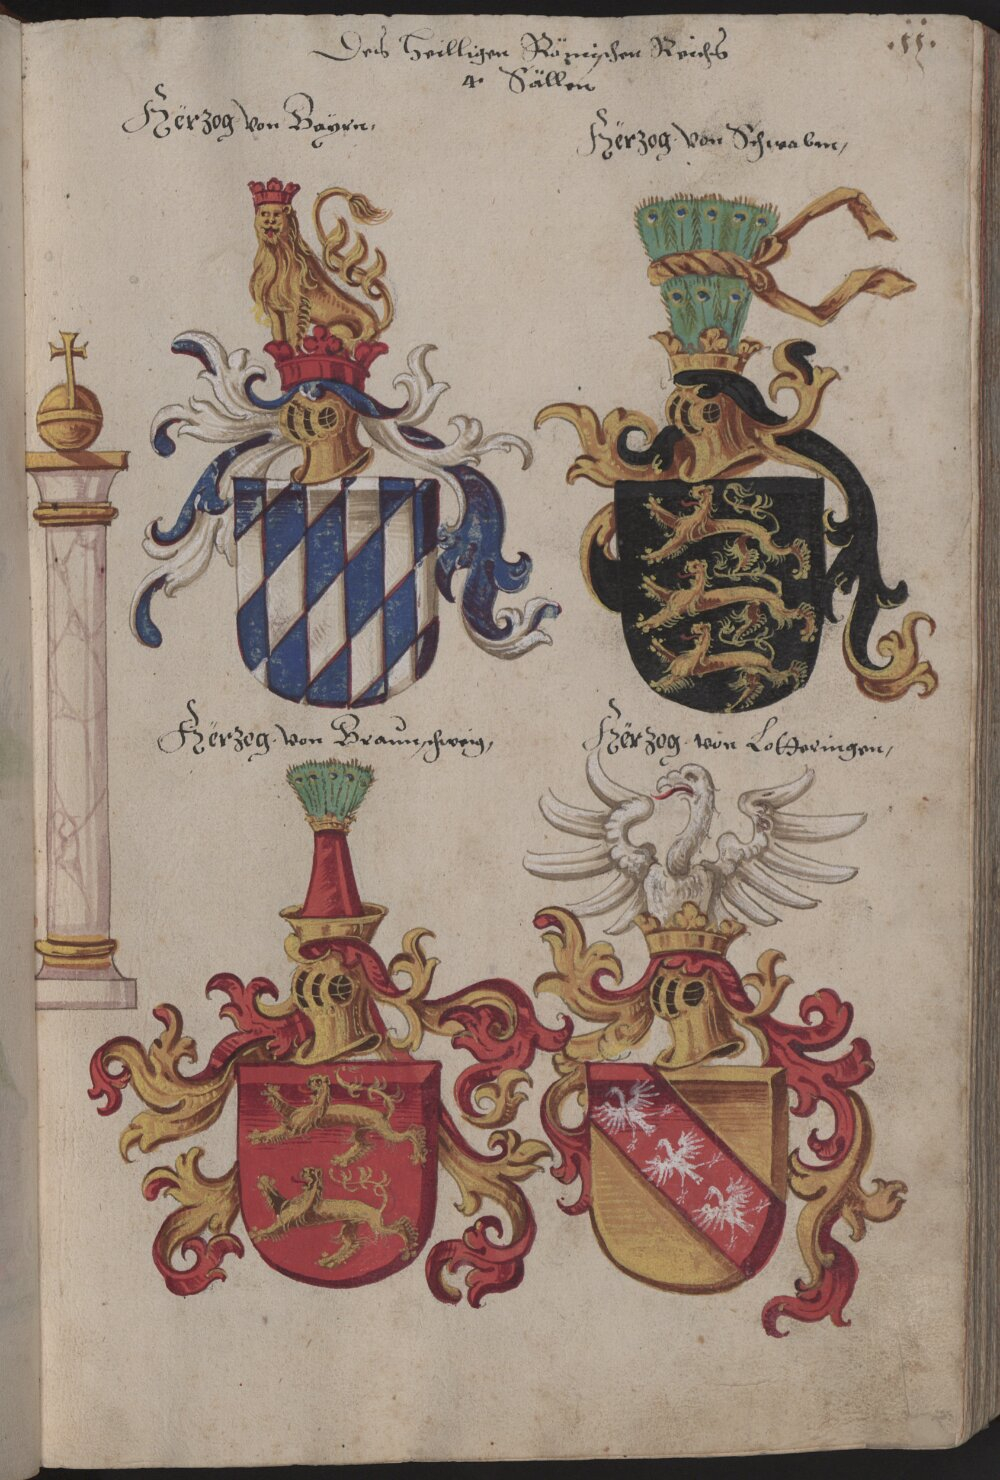 Des Heilligen Römischen Reichs
.55.
4. Säüllen
Hërzog von Bayrn,
Hërzog von Schwaben,
Hërzog von Braunschweig,
Hërzog von Lottringen,